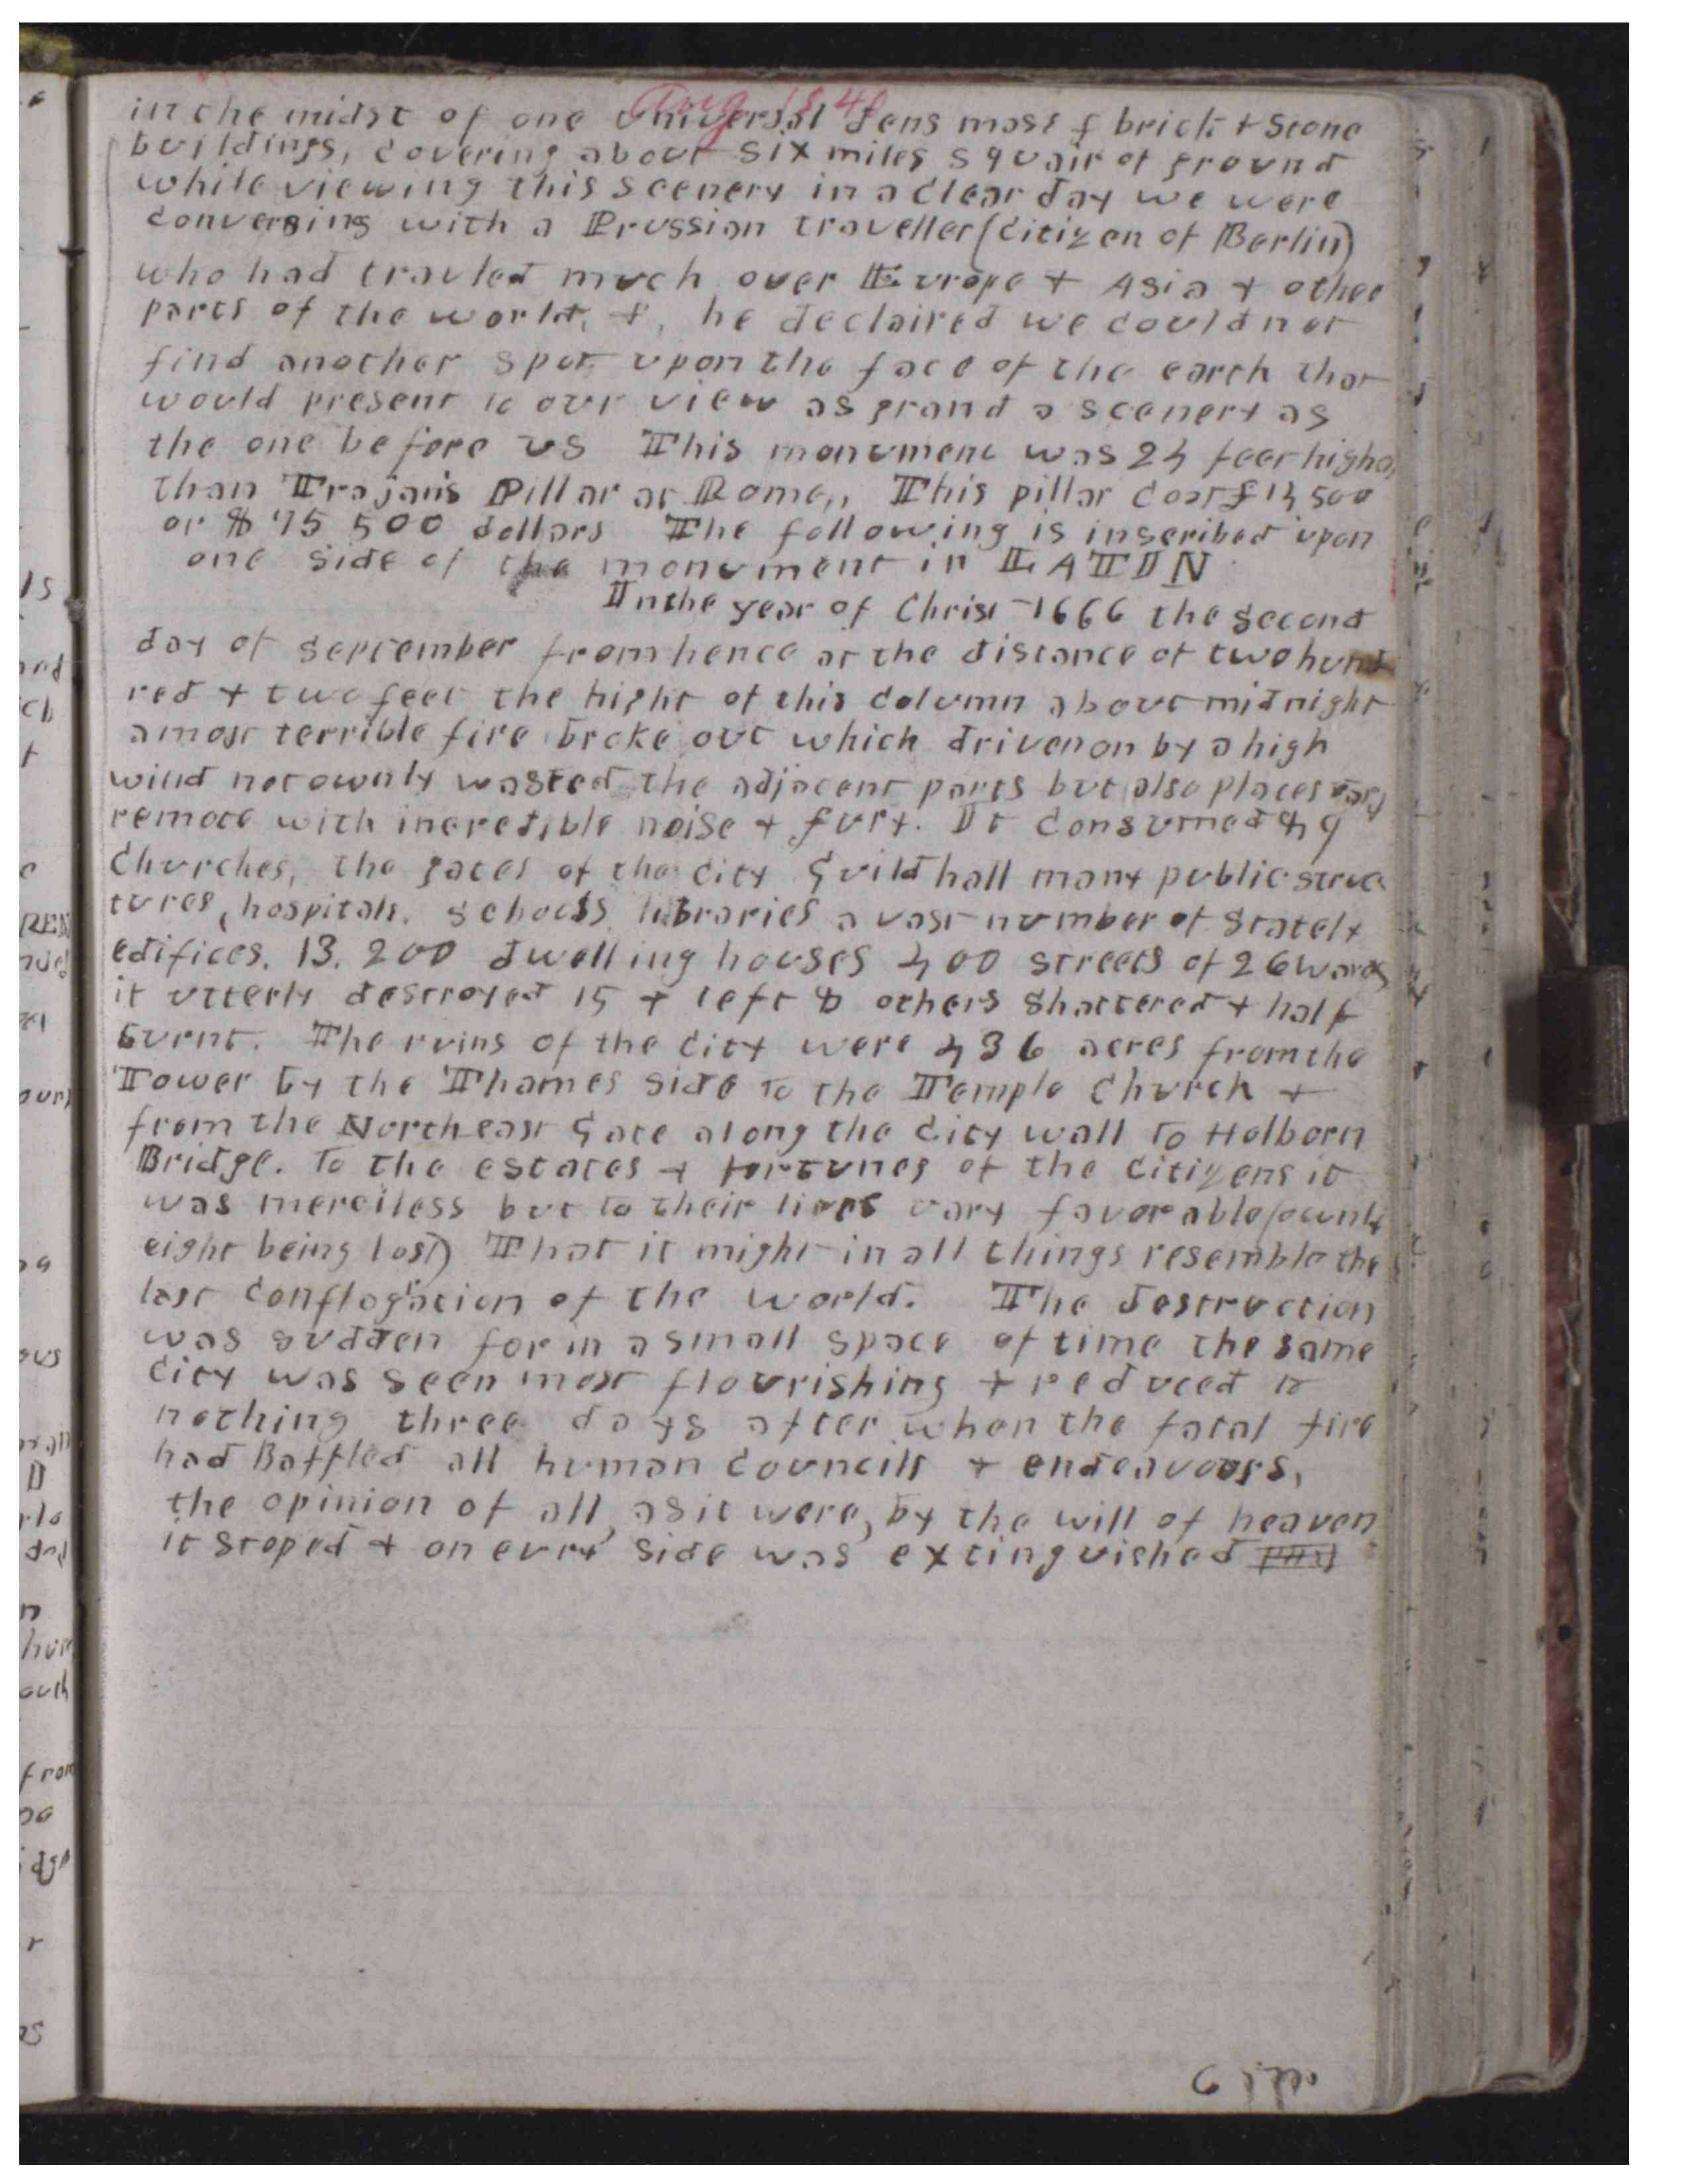 Aug 1840
in the midst of one universal dens mass of brick + Stone
buildings, covering about six miles squair of ground
while viewing this scenery in a clear day we were
conversing with a Prussian traveller (citizen of Berlin)
who had travled much over Europe + Asia + other
parts of the world, +, he declaired we could not
find another spot upon the face of the earth that
would present to our view as grand a scenery as
the one before us This monument was 24 feet higher
than Trajan's Pillar at Rome,, This pillar cost £14 500
or $ 75 500 dollars The following is inscribed upon
one side of the monument in LATIN
In the year of Christ 1666 the second
day of September from hence at the distance of two hund
red + two feet the hight of this column about midnight
a most terrible fire broke out which driven on by a high
wind not ownly wasted the adjacent parts but also places vary
remote with incredible noise + fury. It consumed 49
Churches, the gates of the city Guild hall many public struc
tures, hospitals. schools libraries a vast number of stately
edifices. 13.200 dwelling houses 400 streets of 26 wards
it utterly destroyed 15 + left 8 others shattered + half
burnt. The ruins of the city were 436 acres from the
Tower by the Thames side to the Temple Church +
from the North east Gate along the city wall to Holborn
Bridge. To the estates + fortunes of the citizens it
was merciless but to their lives vary favorable (ownly
eight being lost) That it might in all things resemble the
last conflagration of the world. The destruction
was sudden for in a small space of time the same
city was seen most flourishing + reduced to
nothing three days after when the fatal fire
had Baffled all human councils + endeavours,
the opinion of all, as it were, by the will of heaven
it stoped + on evry side was extinguished